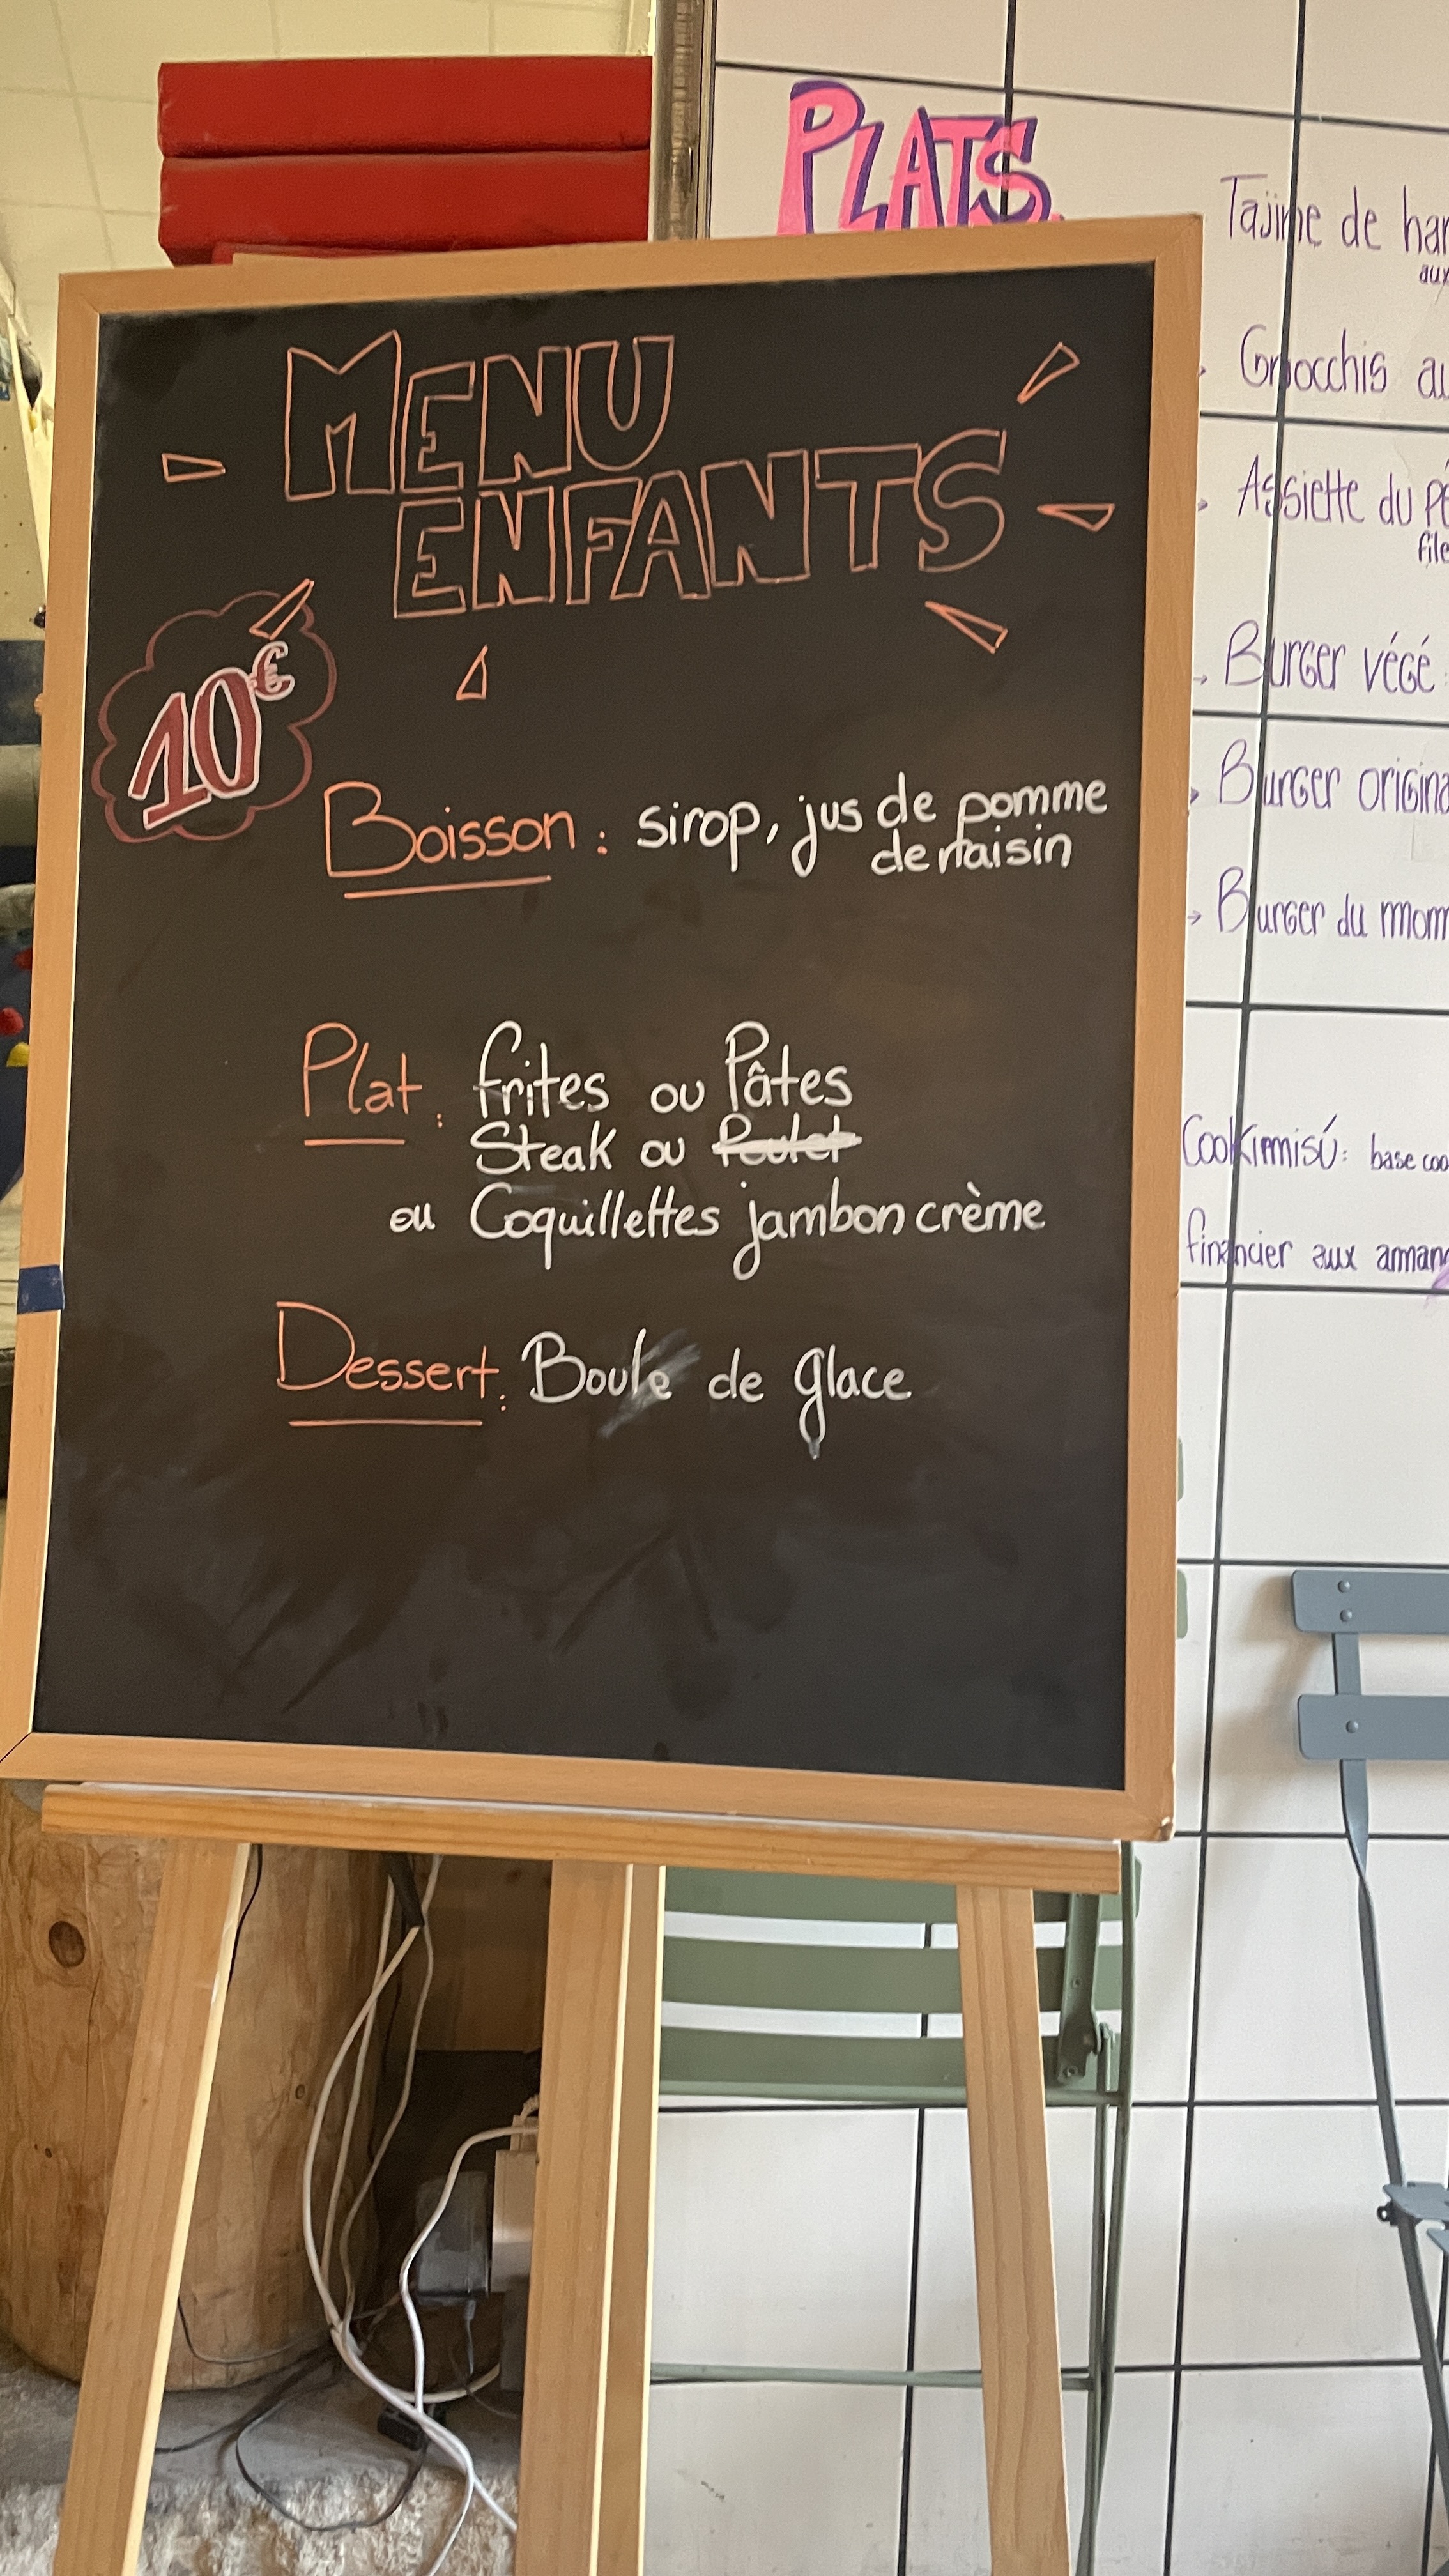 MENU
ENFANTS
10€
Boisson : sirop, jus de pomme
de raisin
Plat : frites ou Pâtes
Steak ou Poulet
ou Coquillettes jambon crème
Dessert : Boule de glace
PLATS
Tajine de har
aux
Gnocchis au
Assiette du pê
file
→ Burger végé :
→ Burger origina
→ Burger du mom
Cookimisú : base coo
financier aux aman